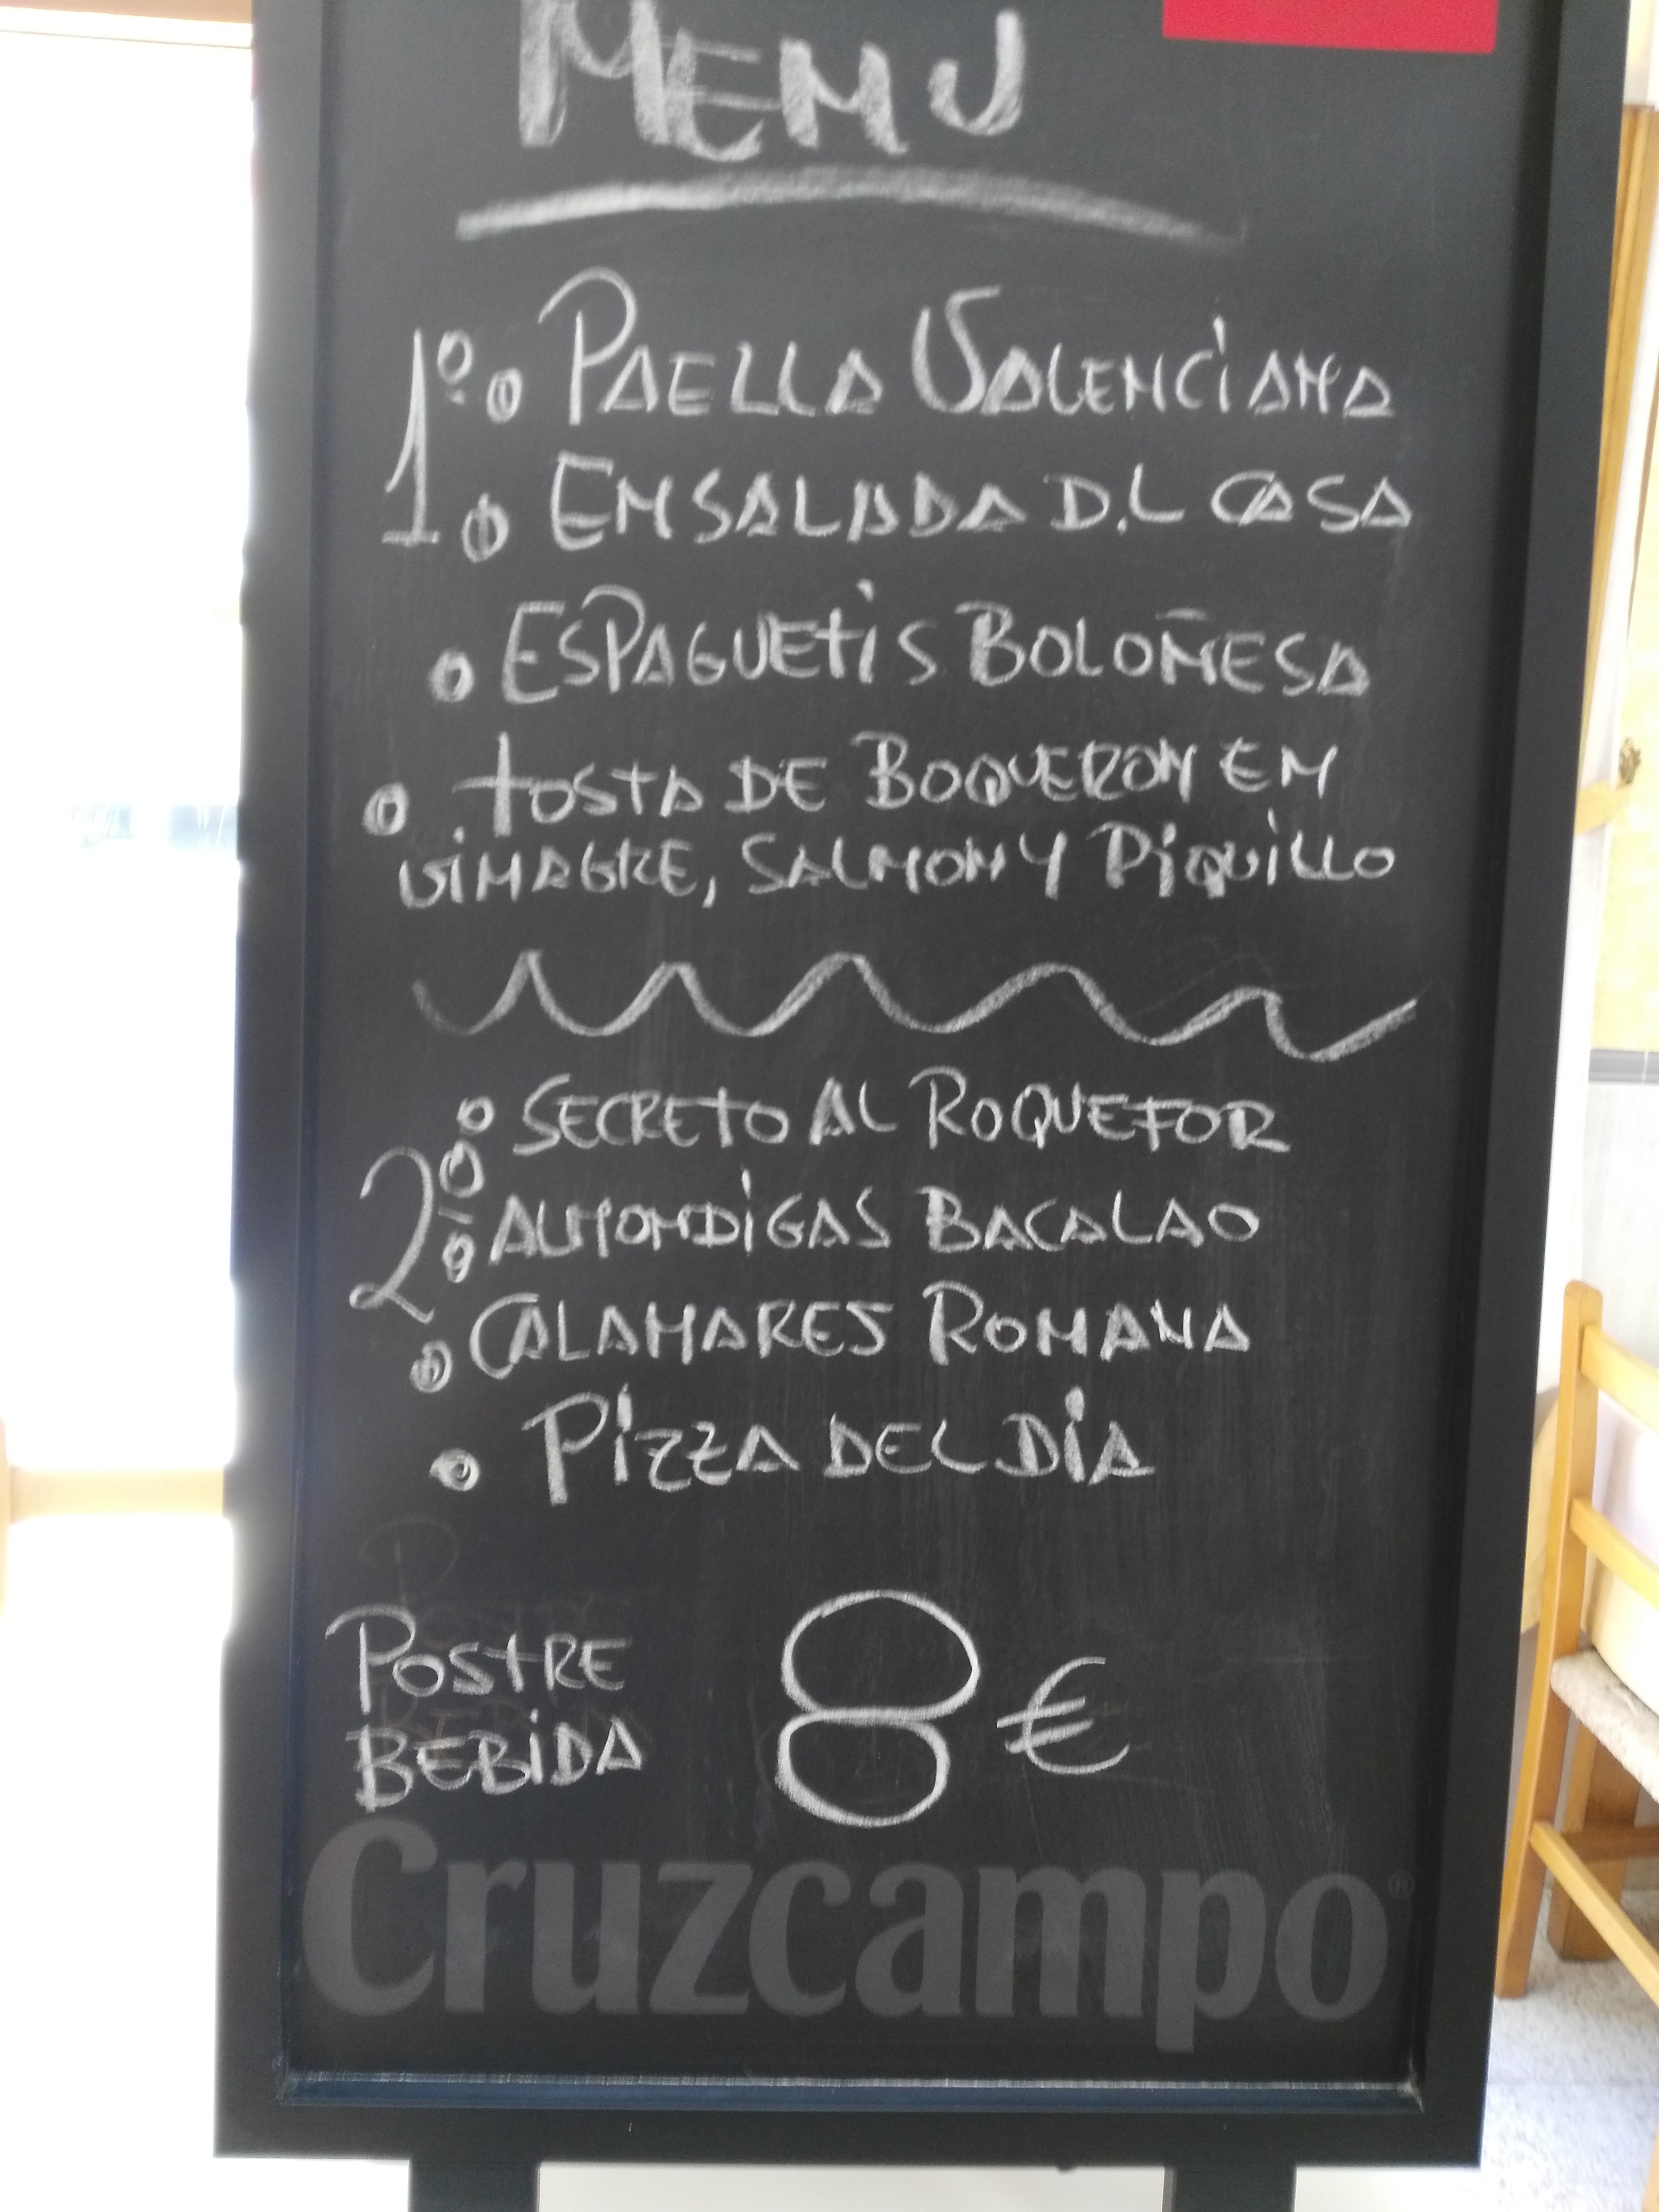 MENU
1º • PAELLA VALENCIANA
• ENSALADA D.L CASA
• ESPAGUETIS BOLOÑESA
• TOSTA DE BOQUERON EN
VINAGRE, SALMON Y PIQUILLO
• SECRETO AL ROQUEFOR
2º • ALMONDIGAS BACALAO
• CALAMARES ROMANA
• PIZZA DEL DIA
POSTRE
BEBIDA 8 €
Cruzcampo®